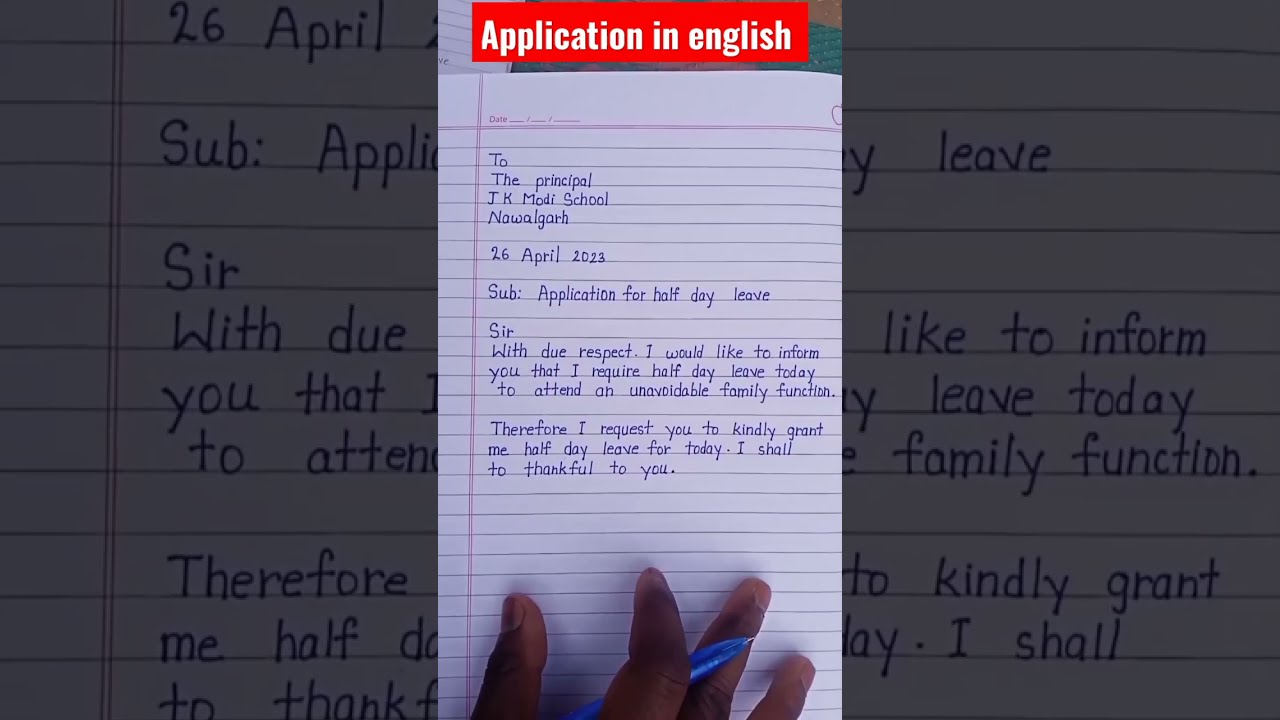 Application in english
Date __ / __ / ____
To
The principal
J K Modi School
Nawalgarh
26 April 2023
Sub: Application for half day leave
Sir
With due respect. I would like to inform
you that I require half day leave today
to attend an unavoidable family function.
Therefore I request you to kindly grant
me half day leave for today. I shall
to thankful to you.